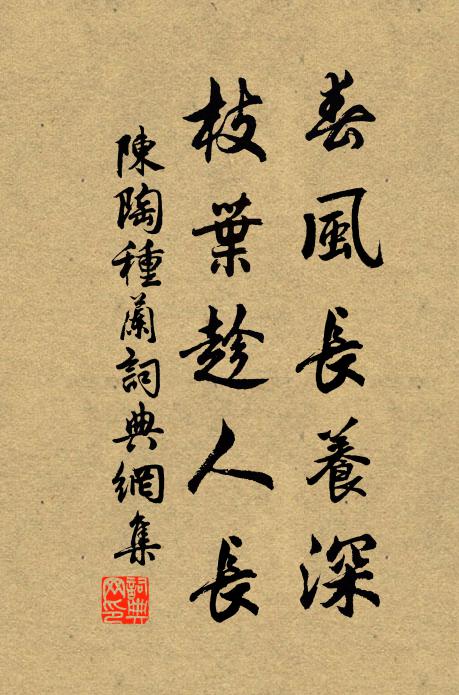 春風長養深
枝葉趁人長
陳陶種蘭詞典網集
詞典網印